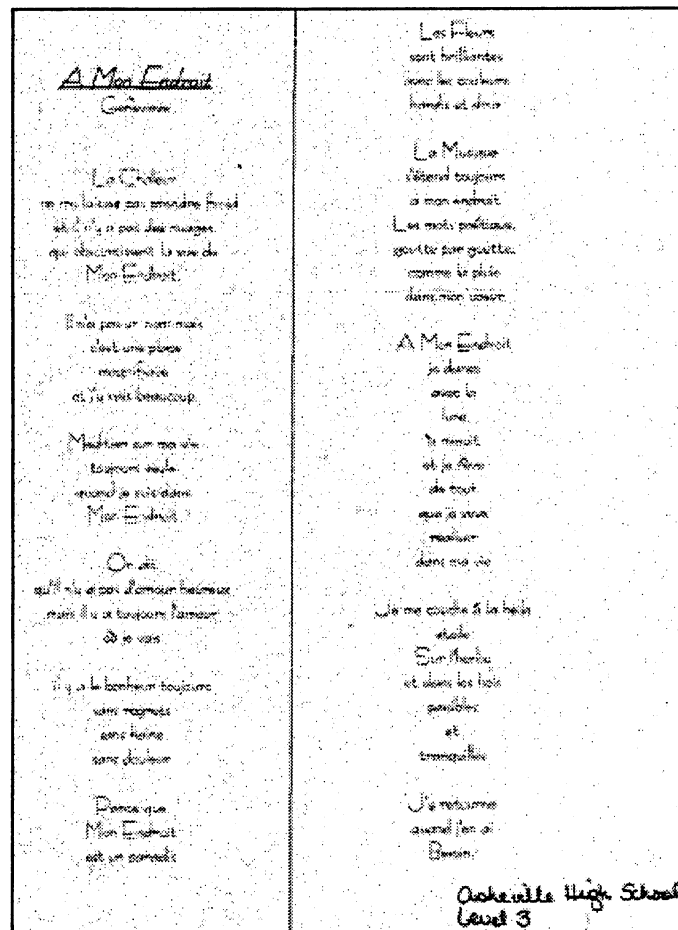 A Mon Endroit
La Chaleur
ne me laisse pas prendre froid
et il n'y a pas des nuages
qui obscurcissent la vue de
Mon Endroit.
Il n'a pas un nom mais
c'est une place
magnifique
et j'y vais beaucoup.
ma vie
toujours seule
quand je suis dans
Mon Endroit.
On dit
qu'il n'y a pas d'amour heureux
mais il y a toujours l'amour
où je vais
il y a le bonheur toujours
sans regrets
sans haine
sans douleur
Parce que
Mon Endroit
est un paradis
Les Fleurs
sont brillantes
avec les couleurs
La Musique
s'étend toujours
à mon endroit.
Les mots poétiques,
goutte par goutte,
comme la pluie
dans mon coeur.
A Mon Endroit
je danse
avec la
lune
à minuit
et je rêve
de tout
que je veux
réaliser
dans ma vie
Je me couche à la belle
étoile
Sur l'herbe
et dans les bois
paisibles
et
tranquilles
J'y retourne
quand j'en ai
Besoin.
Asheville High School
Level 3